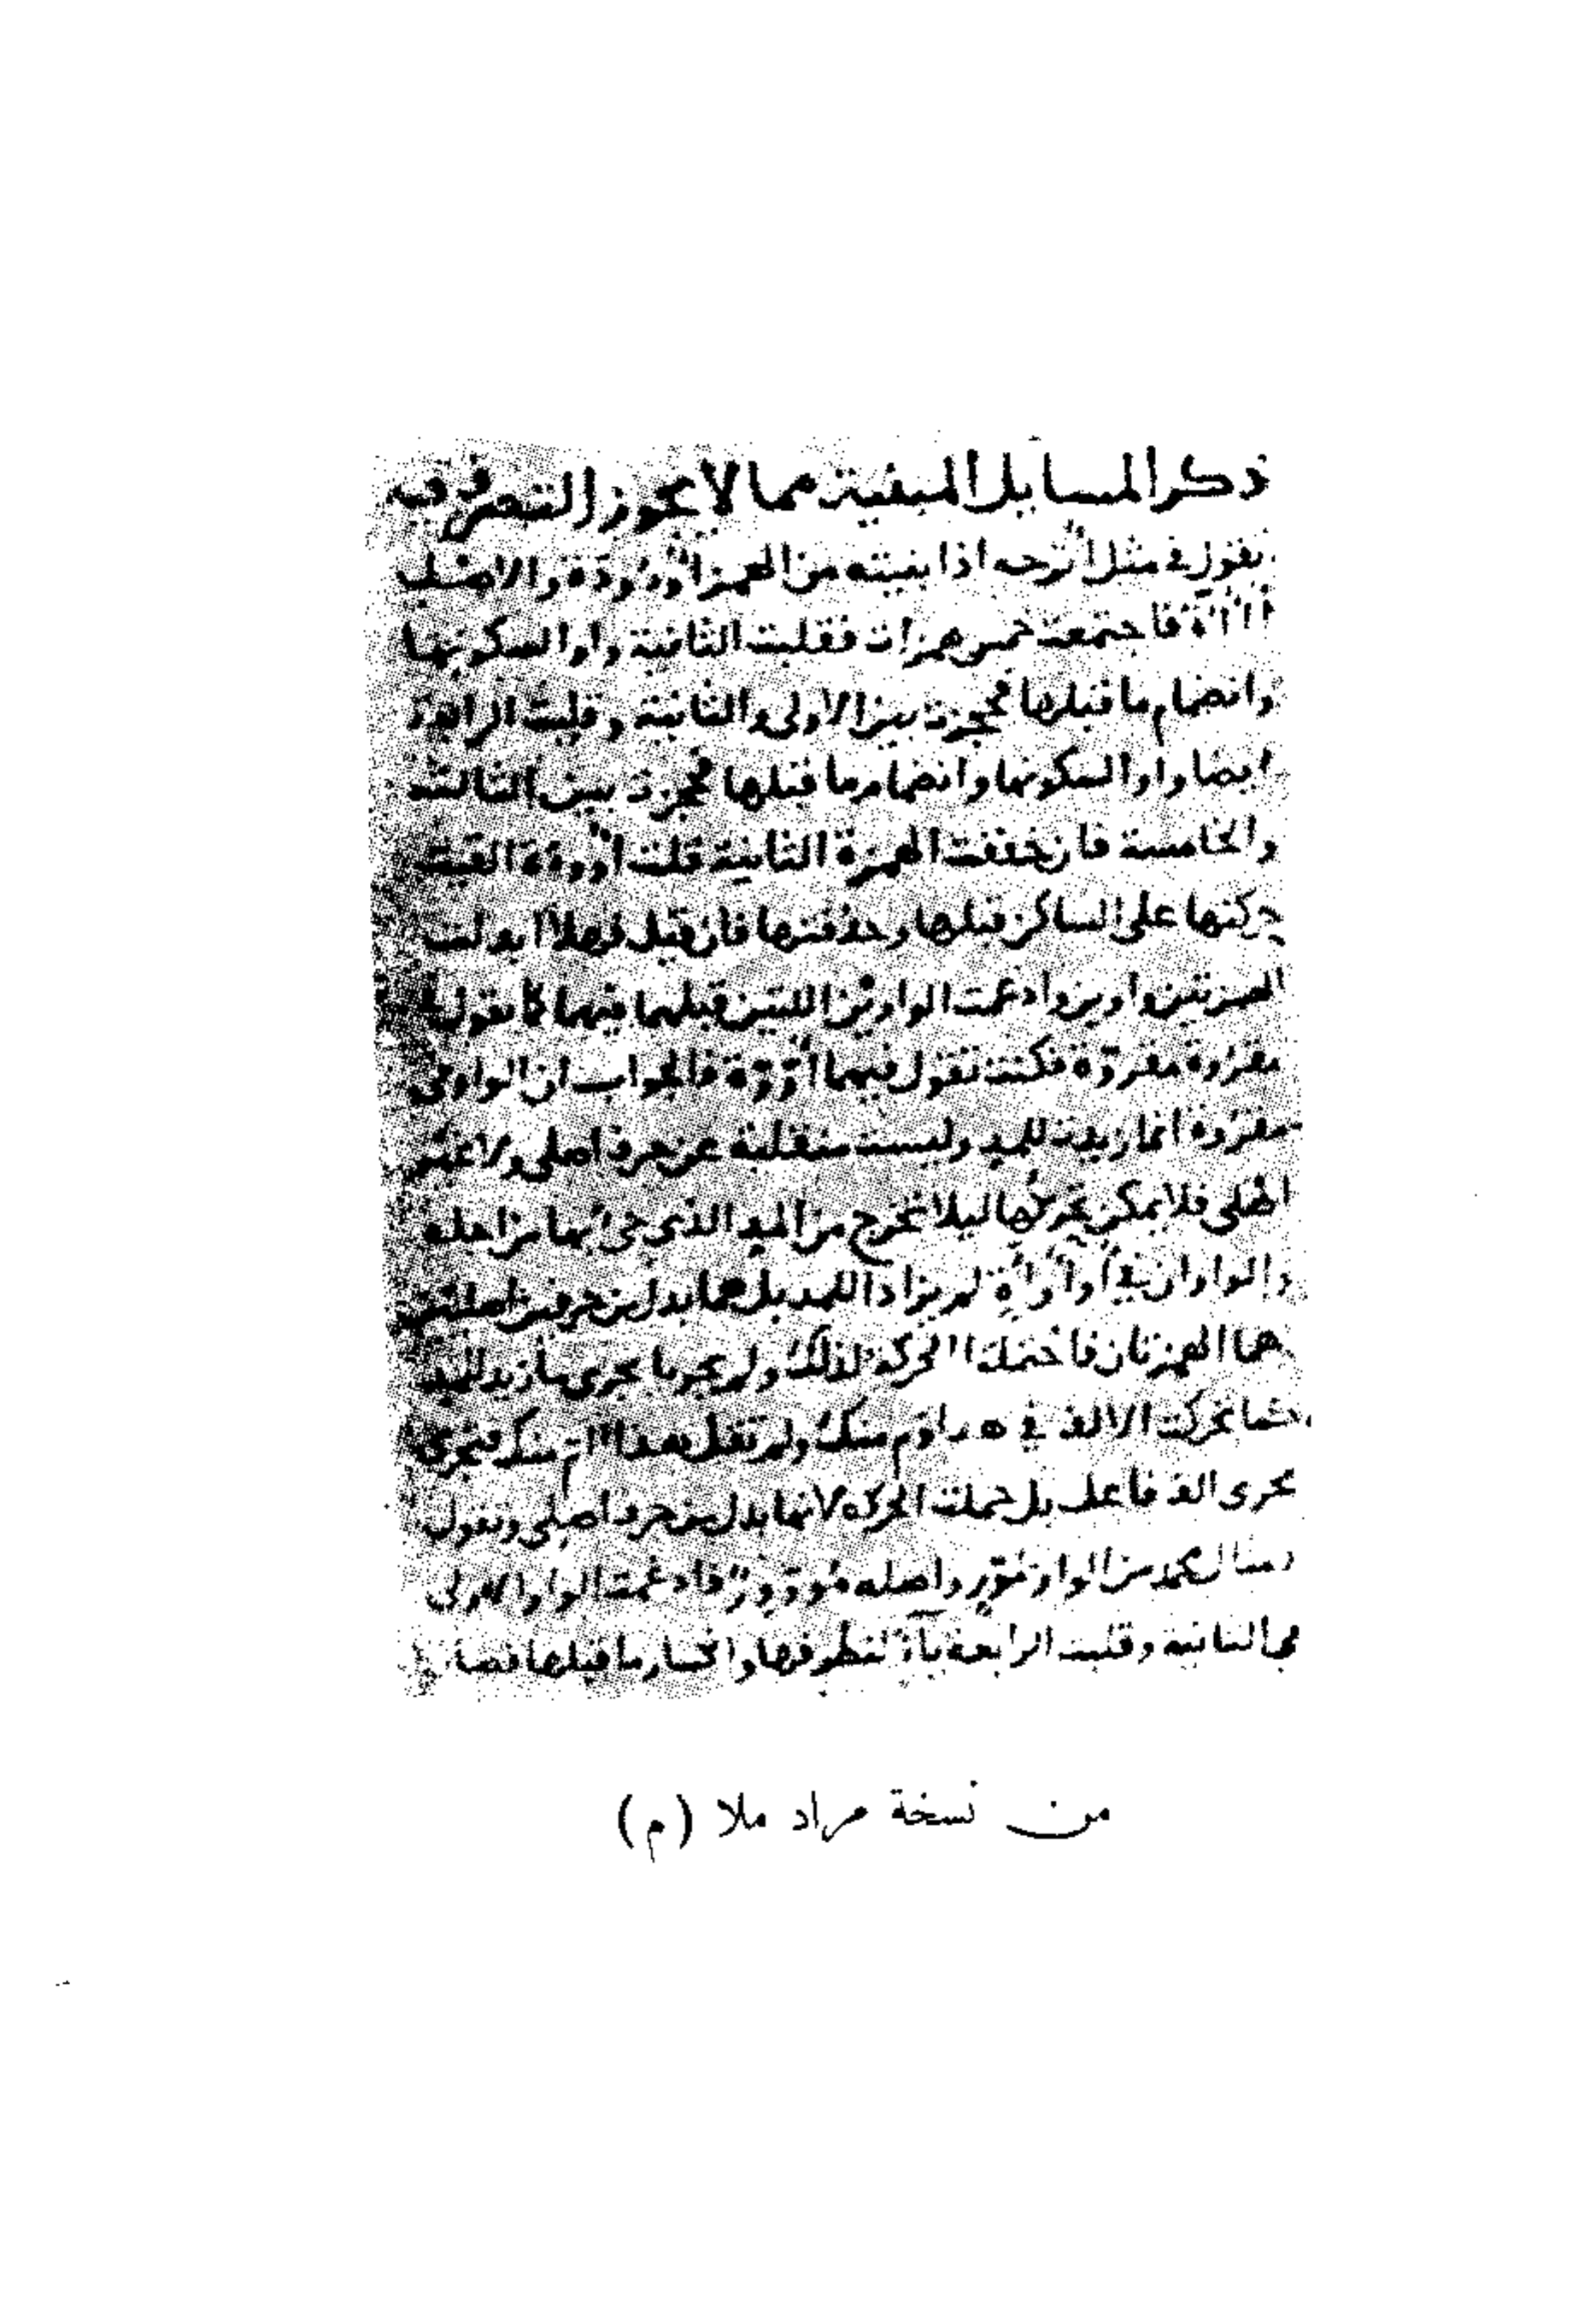 ذكر المسايل المبنية مما لا يجوز التصرف فيه
تقول في مثل أترجه اذا بنيته من الهمز أوءوءة والاصل
أأأأة فاجتمعت خمس همزات فقلبت الثانية واوا لسكونها
وانضمام ما قبلها فحجزت بين الاولى والثالثة وقلبت الرابعة
ايضا واوا لسكونها وانضمام ما قبلها فحجزت بين الثالثة
والخامسة فان خففت الهمزة الثانية قلت أووءة القيت
حركتها على الساكن قبلها وحذفتها فان قيل فهلا ابدلت
الهمزتين واوين وادغمت الواوين اللتين قبلهما فيهما كما تقول في
مقروءة مقروة فكنت تقول فيهما أووة فالجواب ان الواو في
مقروءة انما زيدت للمد وليست منقلبة عن حرف اصلي ولا غير
اصلي فلا يمكن تحركها ليلا تخرج من المد الذي جئ بها من اجله
والواوان في لم يزادا للمد بل هما بدل من حرفين اصليين
هما الهمزتان فاحتملتا الحركة لذلك ولم يجريا مجرى ما زيد للمد
كما تحركت الالف في هذا اوم منك ولم تقل هذا اام منك فتجرى
مجرى الف فاعل بل حملت الحركة لانها بدل من حرف اصلي وتقول
في مثال من الواو واصله فادغمت الواو الاولى
في الثانية وقلبت الرابعة ياء لتطرفها وانكسار ما قبلها فصار
من نسخة مراد ملا (م)